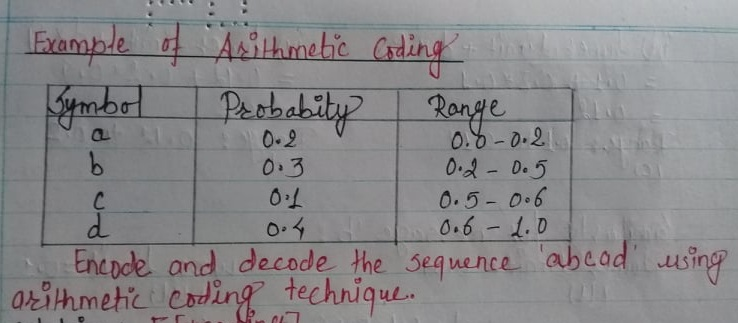 Example of Arithmetic Coding
Symbol Probabity Range
a 0.2 0.0 - 0.2
b 0.3 0.2 - 0.5
c 0.1 0.5 - 0.6
d 0.4 0.6 - 1.0
Encode and decode the sequence 'abcad' using
arithmetic coding technique.